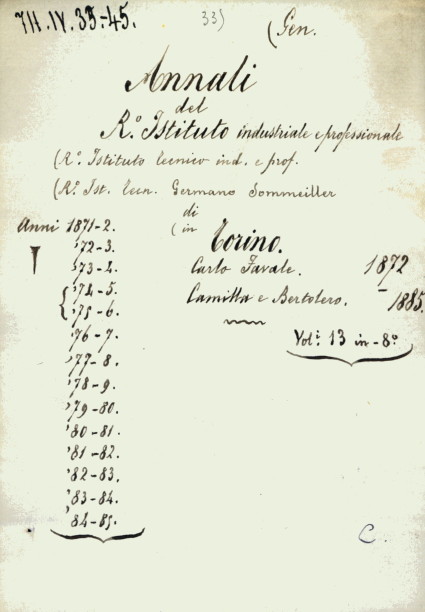 7H.IV.35-45.
33)
(Gen.
Annali
del
R.º Istituto industriale e professionale
(R.º Istituto tecnico ind. e prof.
(R.º Ist. Tecn. Germano Sommeiller
di
(in Torino.
Anni 1871-2.
'72-3.
'73-4.
'74-5.
'75-6.
'76-7.
'77-8.
'78-9.
'79-80.
'80-81.
'81-82.
'82-83.
'83-84.
'84-85.
Carlo Favale. 1872
Camilla e Bertolero. - 1885.
Vol.i 13 in-8º
C.